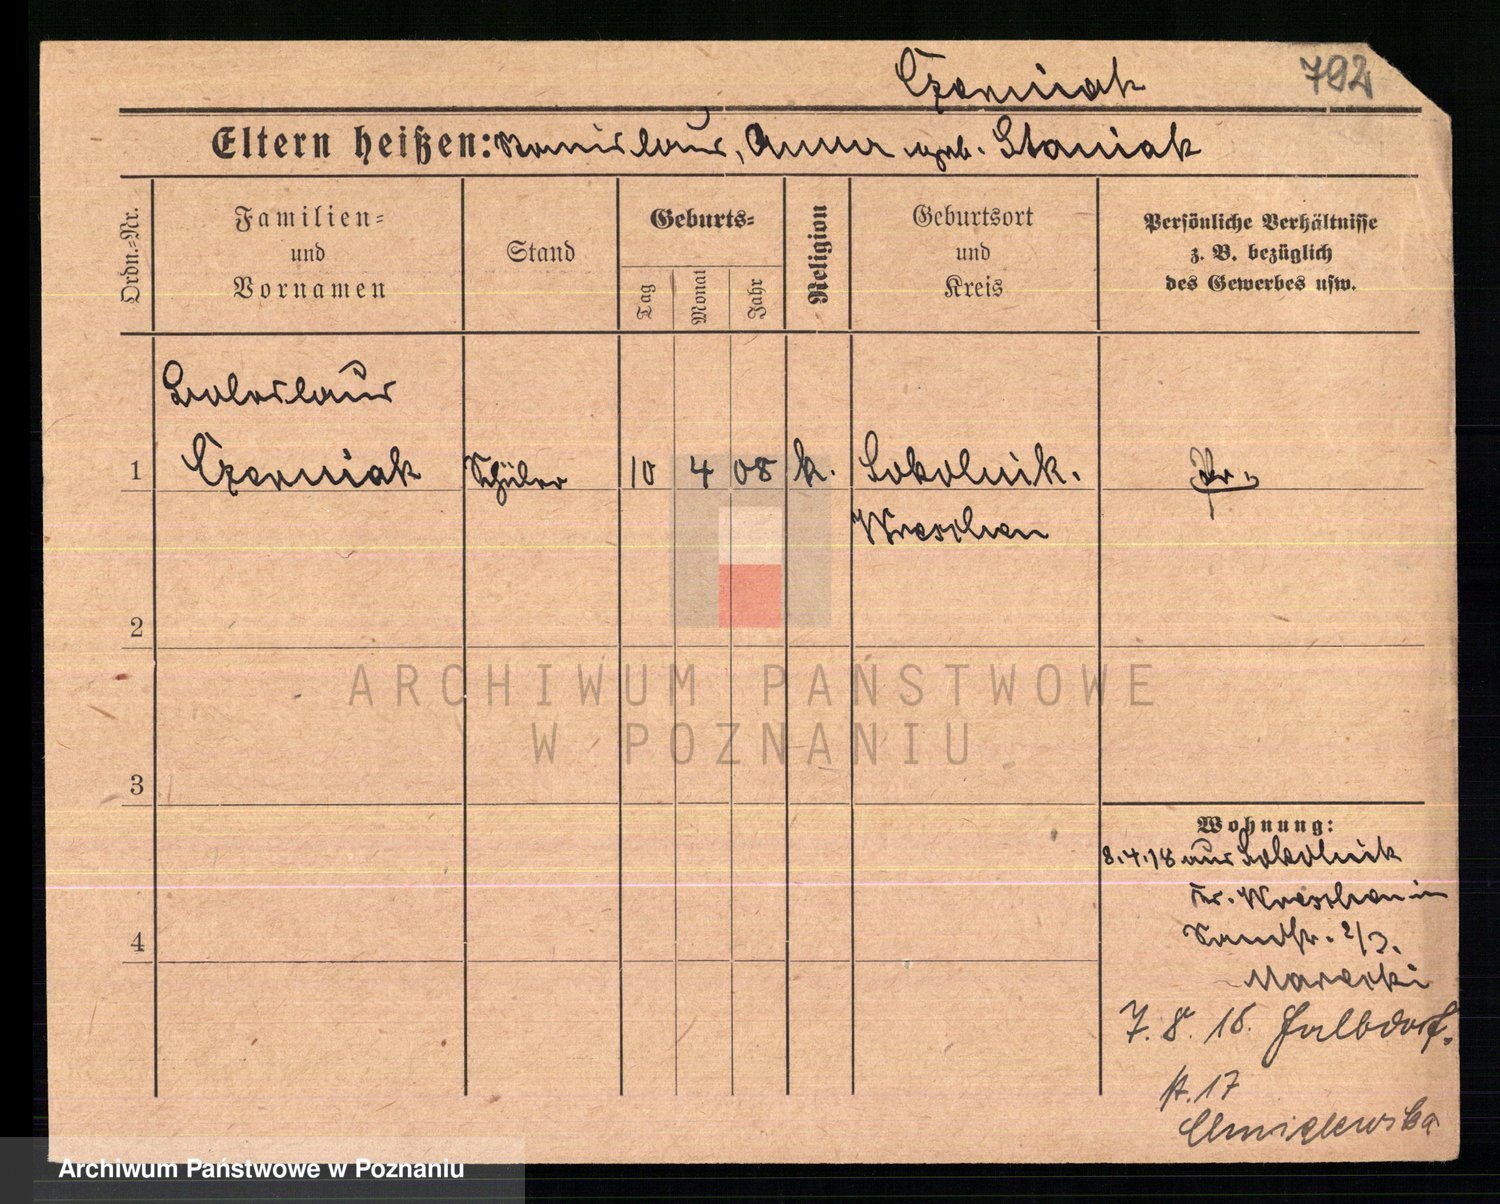 Czerniak 792
Eltern heißen: Stanislaus, Anna geb. Staniak
Ordn.-Nr.
Familien-
und
Vornamen
Stand
Geburts-
Tag
Monat
Jahr
Religion
Geburtsort
und
Kreis
Persönliche Verhältnisse
z. B. bezüglich
des Gewerbes usw.
Boleslaus
1 Czerniak Schüler 10 4 08 k. Sokolnik. Pr.
Wreschen
2
3
4
Wohnung:
8.4.18 aus Sokolnik
Kr. Wreschen in
2/3.
Marecki
7. 8. 18.
17
Chmielewska
ARCHIWUM PAŃSTWOWE
W POZNANIU
Archiwum Państwowe w Poznaniu